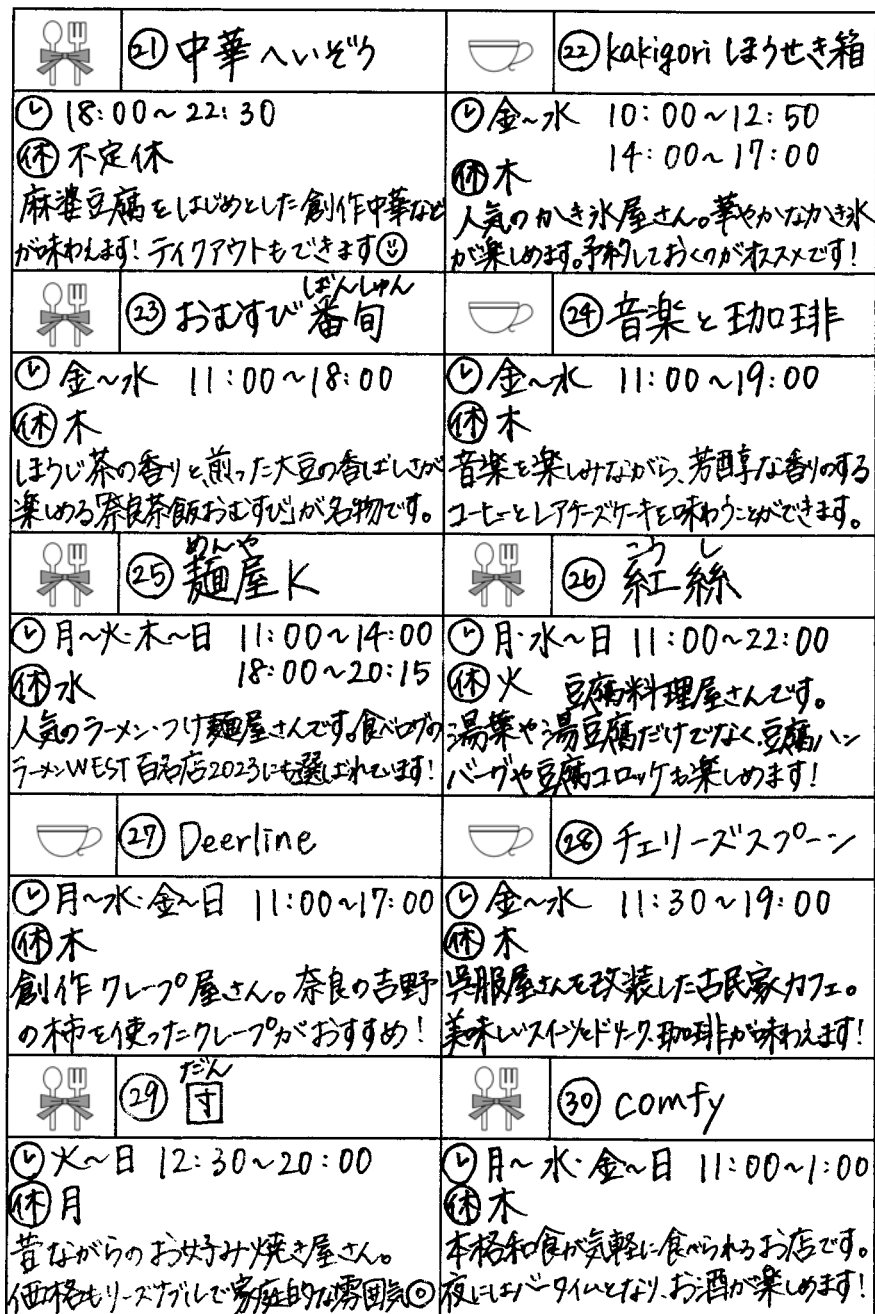 ㉑ 中華へいぞう
18:00～22:30
㊡ 不定休
麻婆豆腐をはじめとした創作中華など
が味わえます! テイクアウトもできます
㉒ kakigori ほうせき箱
金～水 10:00～12:50
14:00～17:00
㊡ 木
人気のかき氷屋さん。華やかなかき氷
が楽しめます。予約しておくのがオススメです!
ばんしゅん
㉓ おむすび番旬
金～水 11:00～18:00
㊡ 木
ほうじ茶の香りと、煎った大豆の香ばしさが
楽しめる「奈良茶飯おむすび」が名物です。
㉔ 音楽と珈琲
金～水 11:00～19:00
㊡ 木
音楽を楽しみながら、芳醇な香りのする
コーヒーとレアチーズケーキを味わうことができます。
めんや
㉕ 麺屋K
月～火・木～日 11:00～14:00
18:00～20:15
㊡ 水
人気のラーメン・つけ麺屋さんです。食べログの
ラーメンWEST百名店2023にも選ばれています!
こうし
㉖ 紅絲
月・水～日 11:00～22:00
㊡ 火 豆腐料理屋さんです。
湯葉や湯豆腐だけでなく、豆腐ハン
バーグや豆腐コロッケも楽しめます!
㉗ Deerline
月～水・金～日 11:00～17:00
㊡ 木
創作クレープ屋さん。奈良の吉野
の柿を使ったクレープがおすすめ!
㉘ チェリーズスプーン
金～水 11:30～19:00
㊡ 木
呉服屋さんを改装した古民家カフェ。
美味しいスイーツとドリンク、珈琲が味わえます!
だん
㉙ 団
火～日 12:30～20:00
㊡ 月
昔ながらのお好み焼き屋さん。
価格もリーズナブルで家庭的な雰囲気◎
㉚ comfy
月～水・金～日 11:00～1:00
㊡ 木
本格和食が気軽に食べられるお店です。
夜にはバータイムとなり、お酒が楽しめます!